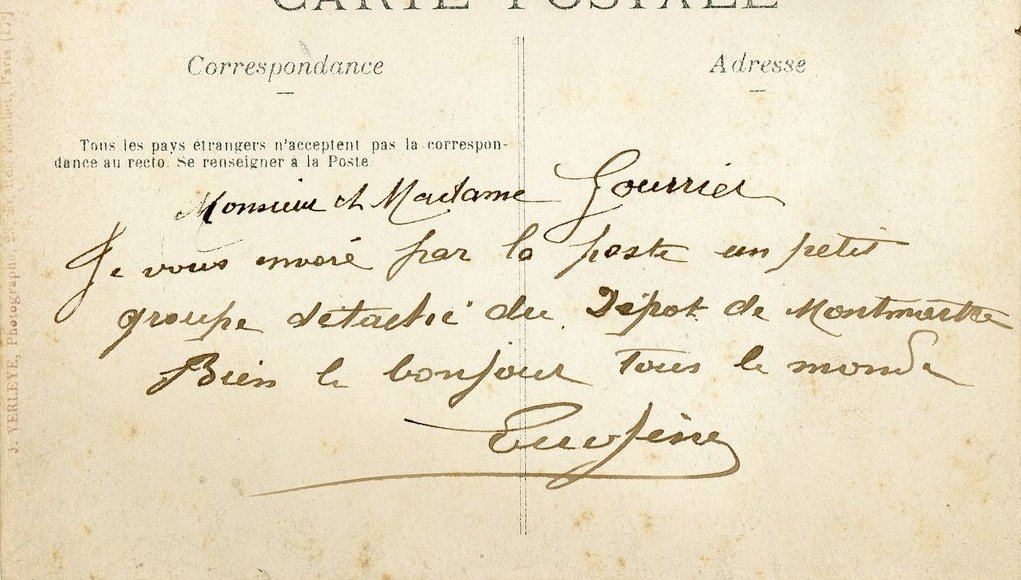 CARTE POSTALE
Correspondance
Adresse
Tous les pays étrangers n'acceptent pas la correspon-
dance au recto. Se renseigner à la Poste.
Monsieur et Madame Gourrier
Je vous envoié par la poste un petit
groupe détaché du Dépot de Montmartre
Bien le bonjour tous le monde
J. VERLEYE, Photographe
Paris